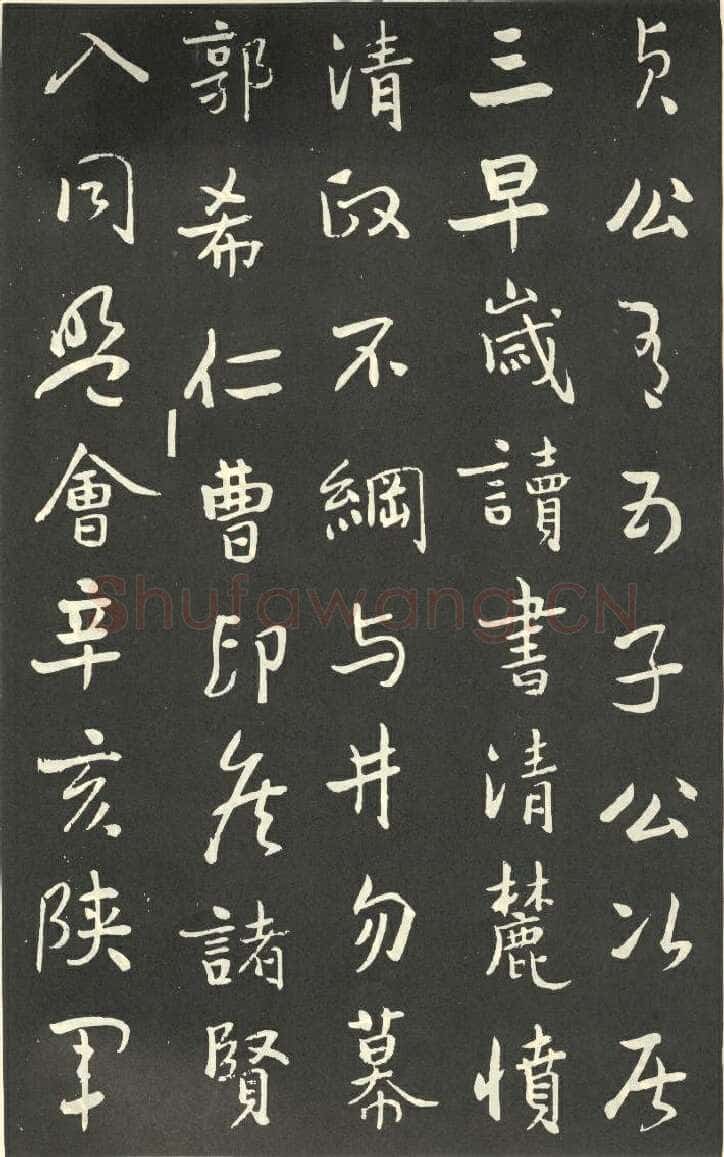 贞公有五子公次居
三早歲讀書清麓憤
清政不綱与井勿幕
郭希仁曹印矦諸賢
入同盟會辛亥陕軍
Shufawang.CN